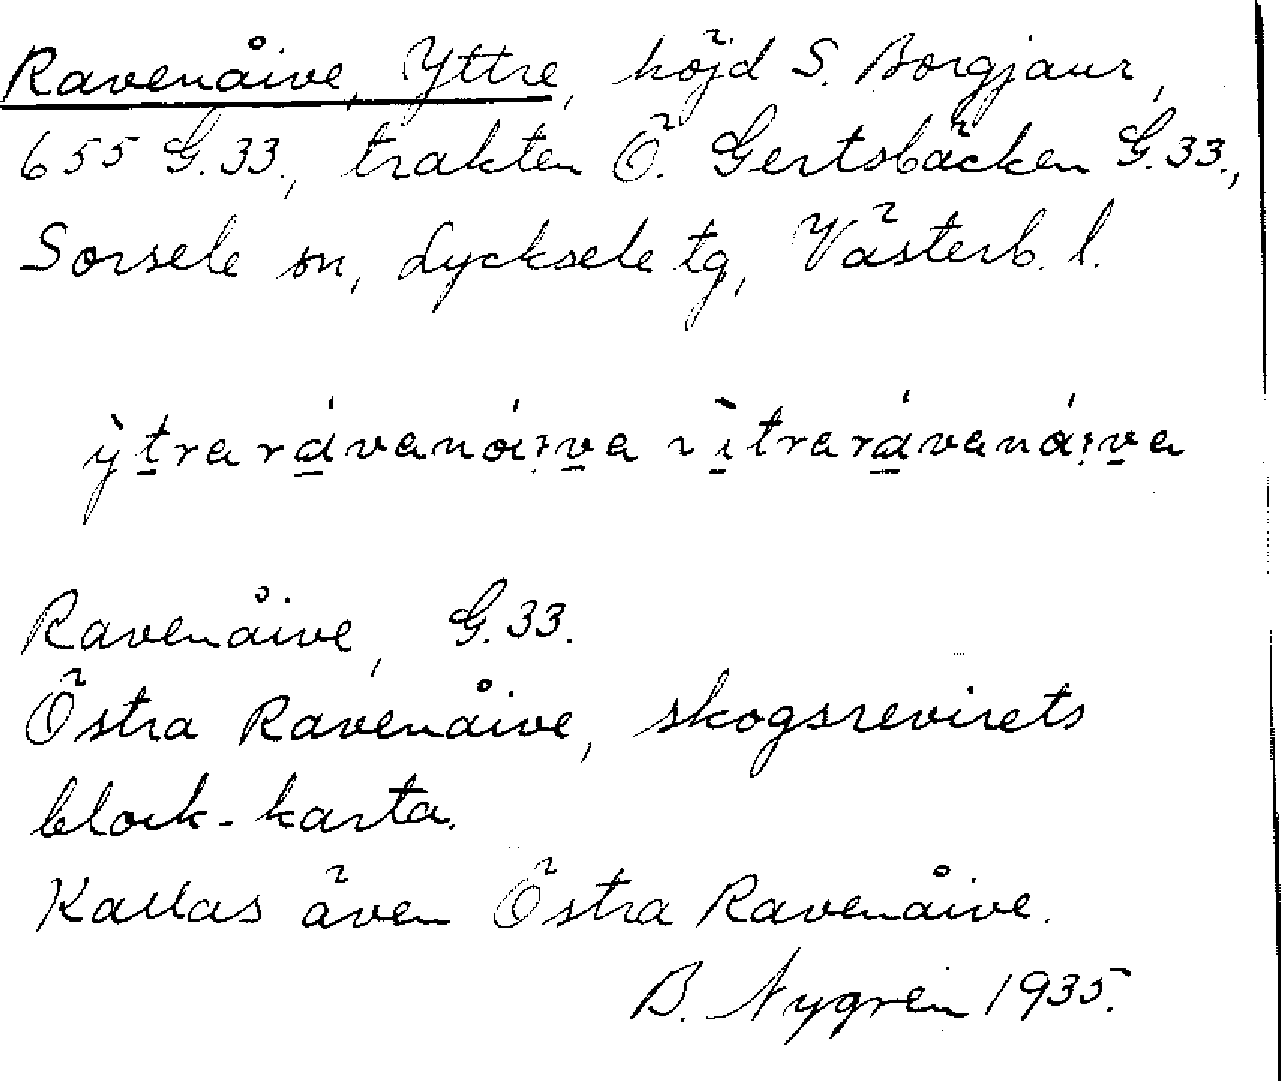 Ravenåive, Yttre, höjd S. Borgjaur,
655 G.33., trakten Ö. Gertsbäcken G.33.,
Sorsele sn, Lycksele tg, Västerb. l.
ỳt̲ra rá̲vanái̯v̲a ~ ì̲tra rá̲vanái̯v̲a
Ravenåive, G.33.
Östra Ravenåive, skogsrevirets
block-karta.
Kallas även Östra Ravenåive.
B. Nygren 1935.